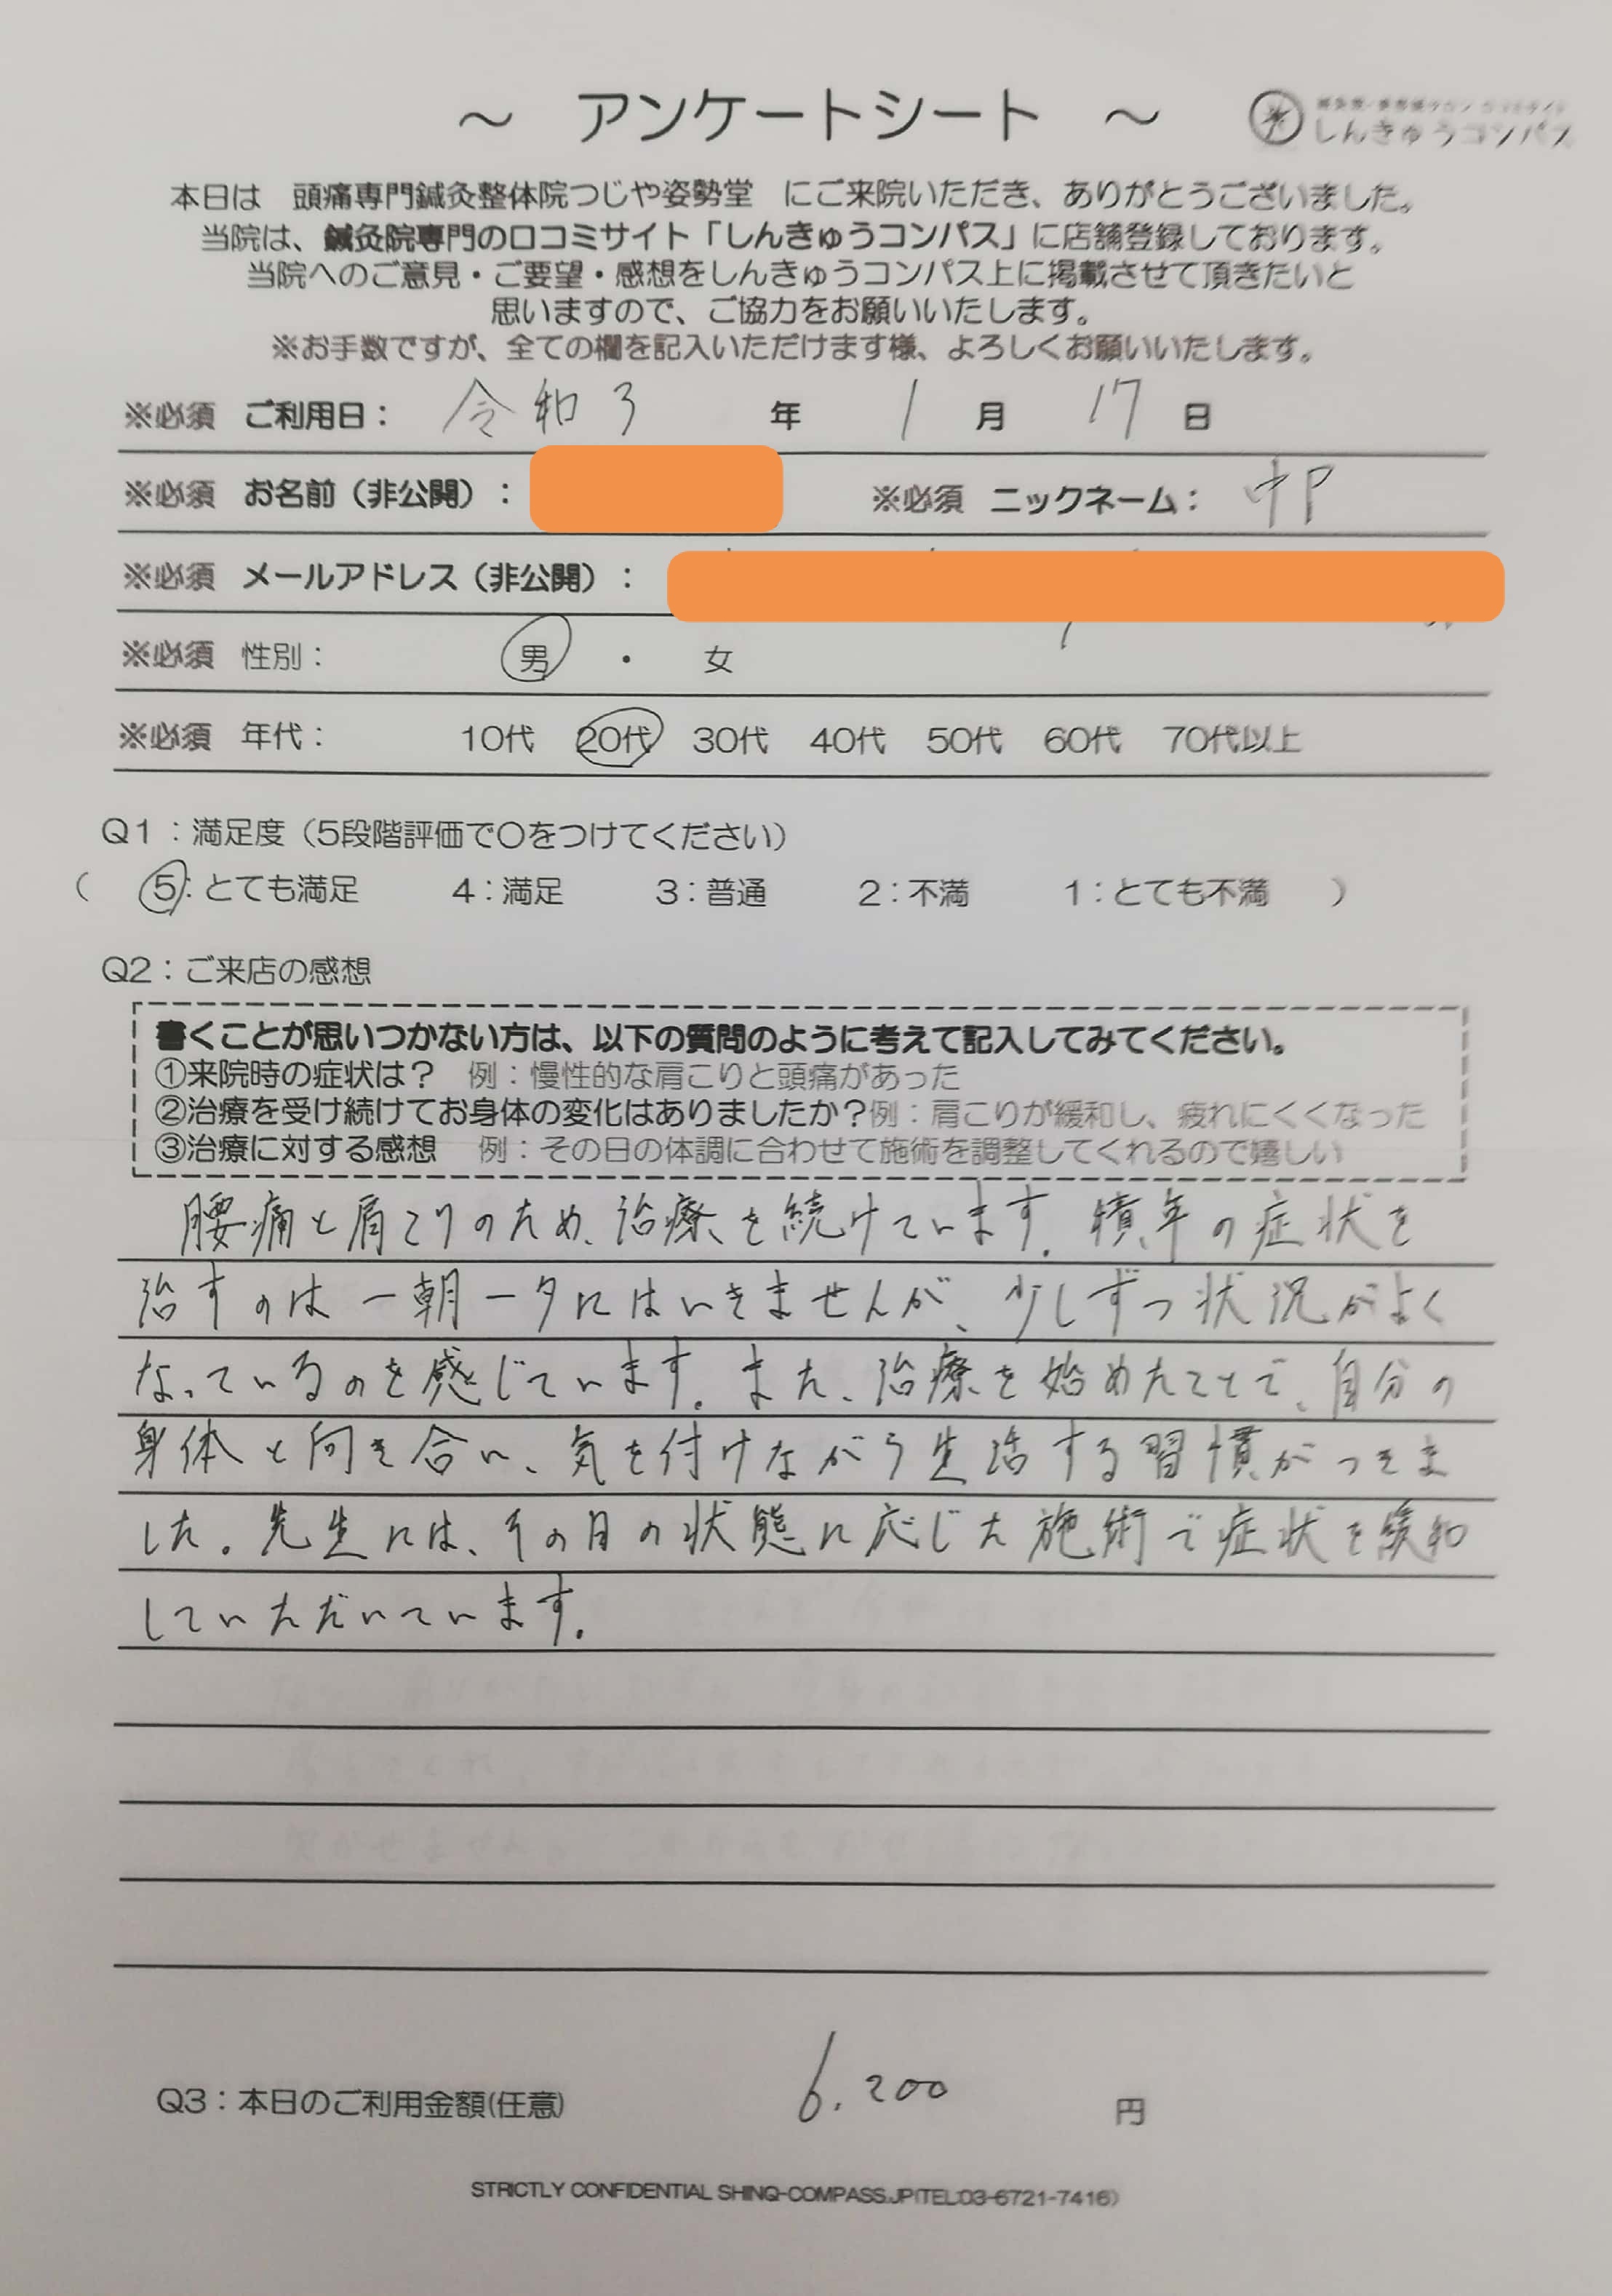 ～ アンケートシート ～
しんきゅうコンパス
本日は 頭痛専門鍼灸整体院つじや姿勢堂 にご来院いただき、ありがとうございました。
当院は、鍼灸院専門の口コミサイト「しんきゅうコンパス」に店舗登録しております。
当院へのご意見・ご要望・感想をしんきゅうコンパス上に掲載させて頂きたいと
思いますので、ご協力をお願いいたします。
※お手数ですが、全ての欄を記入いただけます様、よろしくお願いいたします。
※必須 ご利用日： 令和3 年 1 月 17 日
※必須 お名前（非公開）： ※必須 ニックネーム： 中P
※必須 メールアドレス（非公開）：
※必須 性別： 男 ・ 女
※必須 年代： 10代 20代 30代 40代 50代 60代 70代以上
Q1：満足度（5段階評価で〇をつけてください）
（ 5：とても満足 4：満足 3：普通 2：不満 1：とても不満 ）
Q2：ご来店の感想
書くことが思いつかない方は、以下の質問のように考えて記入してみてください。
①来院時の症状は？ 例：慢性的な肩こりと頭痛があった
②治療を受け続けてお身体の変化はありましたか？例：肩こりが緩和し、疲れにくくなった
③治療に対する感想 例：その日の体調に合わせて施術を調整してくれるので嬉しい
腰痛と肩こりのため、治療を続けています。積年の症状を
治すのは一朝一夕にはいきませんが、少しずつ状況がよく
なっているのを感じています。また、治療を始めたことで、自分の
身体と向き合い、気を付けながら生活する習慣がつきま
した。先生には、その日の状態に応じた施術で症状を緩和
していただいています。
Q3：本日のご利用金額(任意) 6,200 円
STRICTLY CONFIDENTIAL SHINQ-COMPASS.JP(TEL:03-6721-7416)